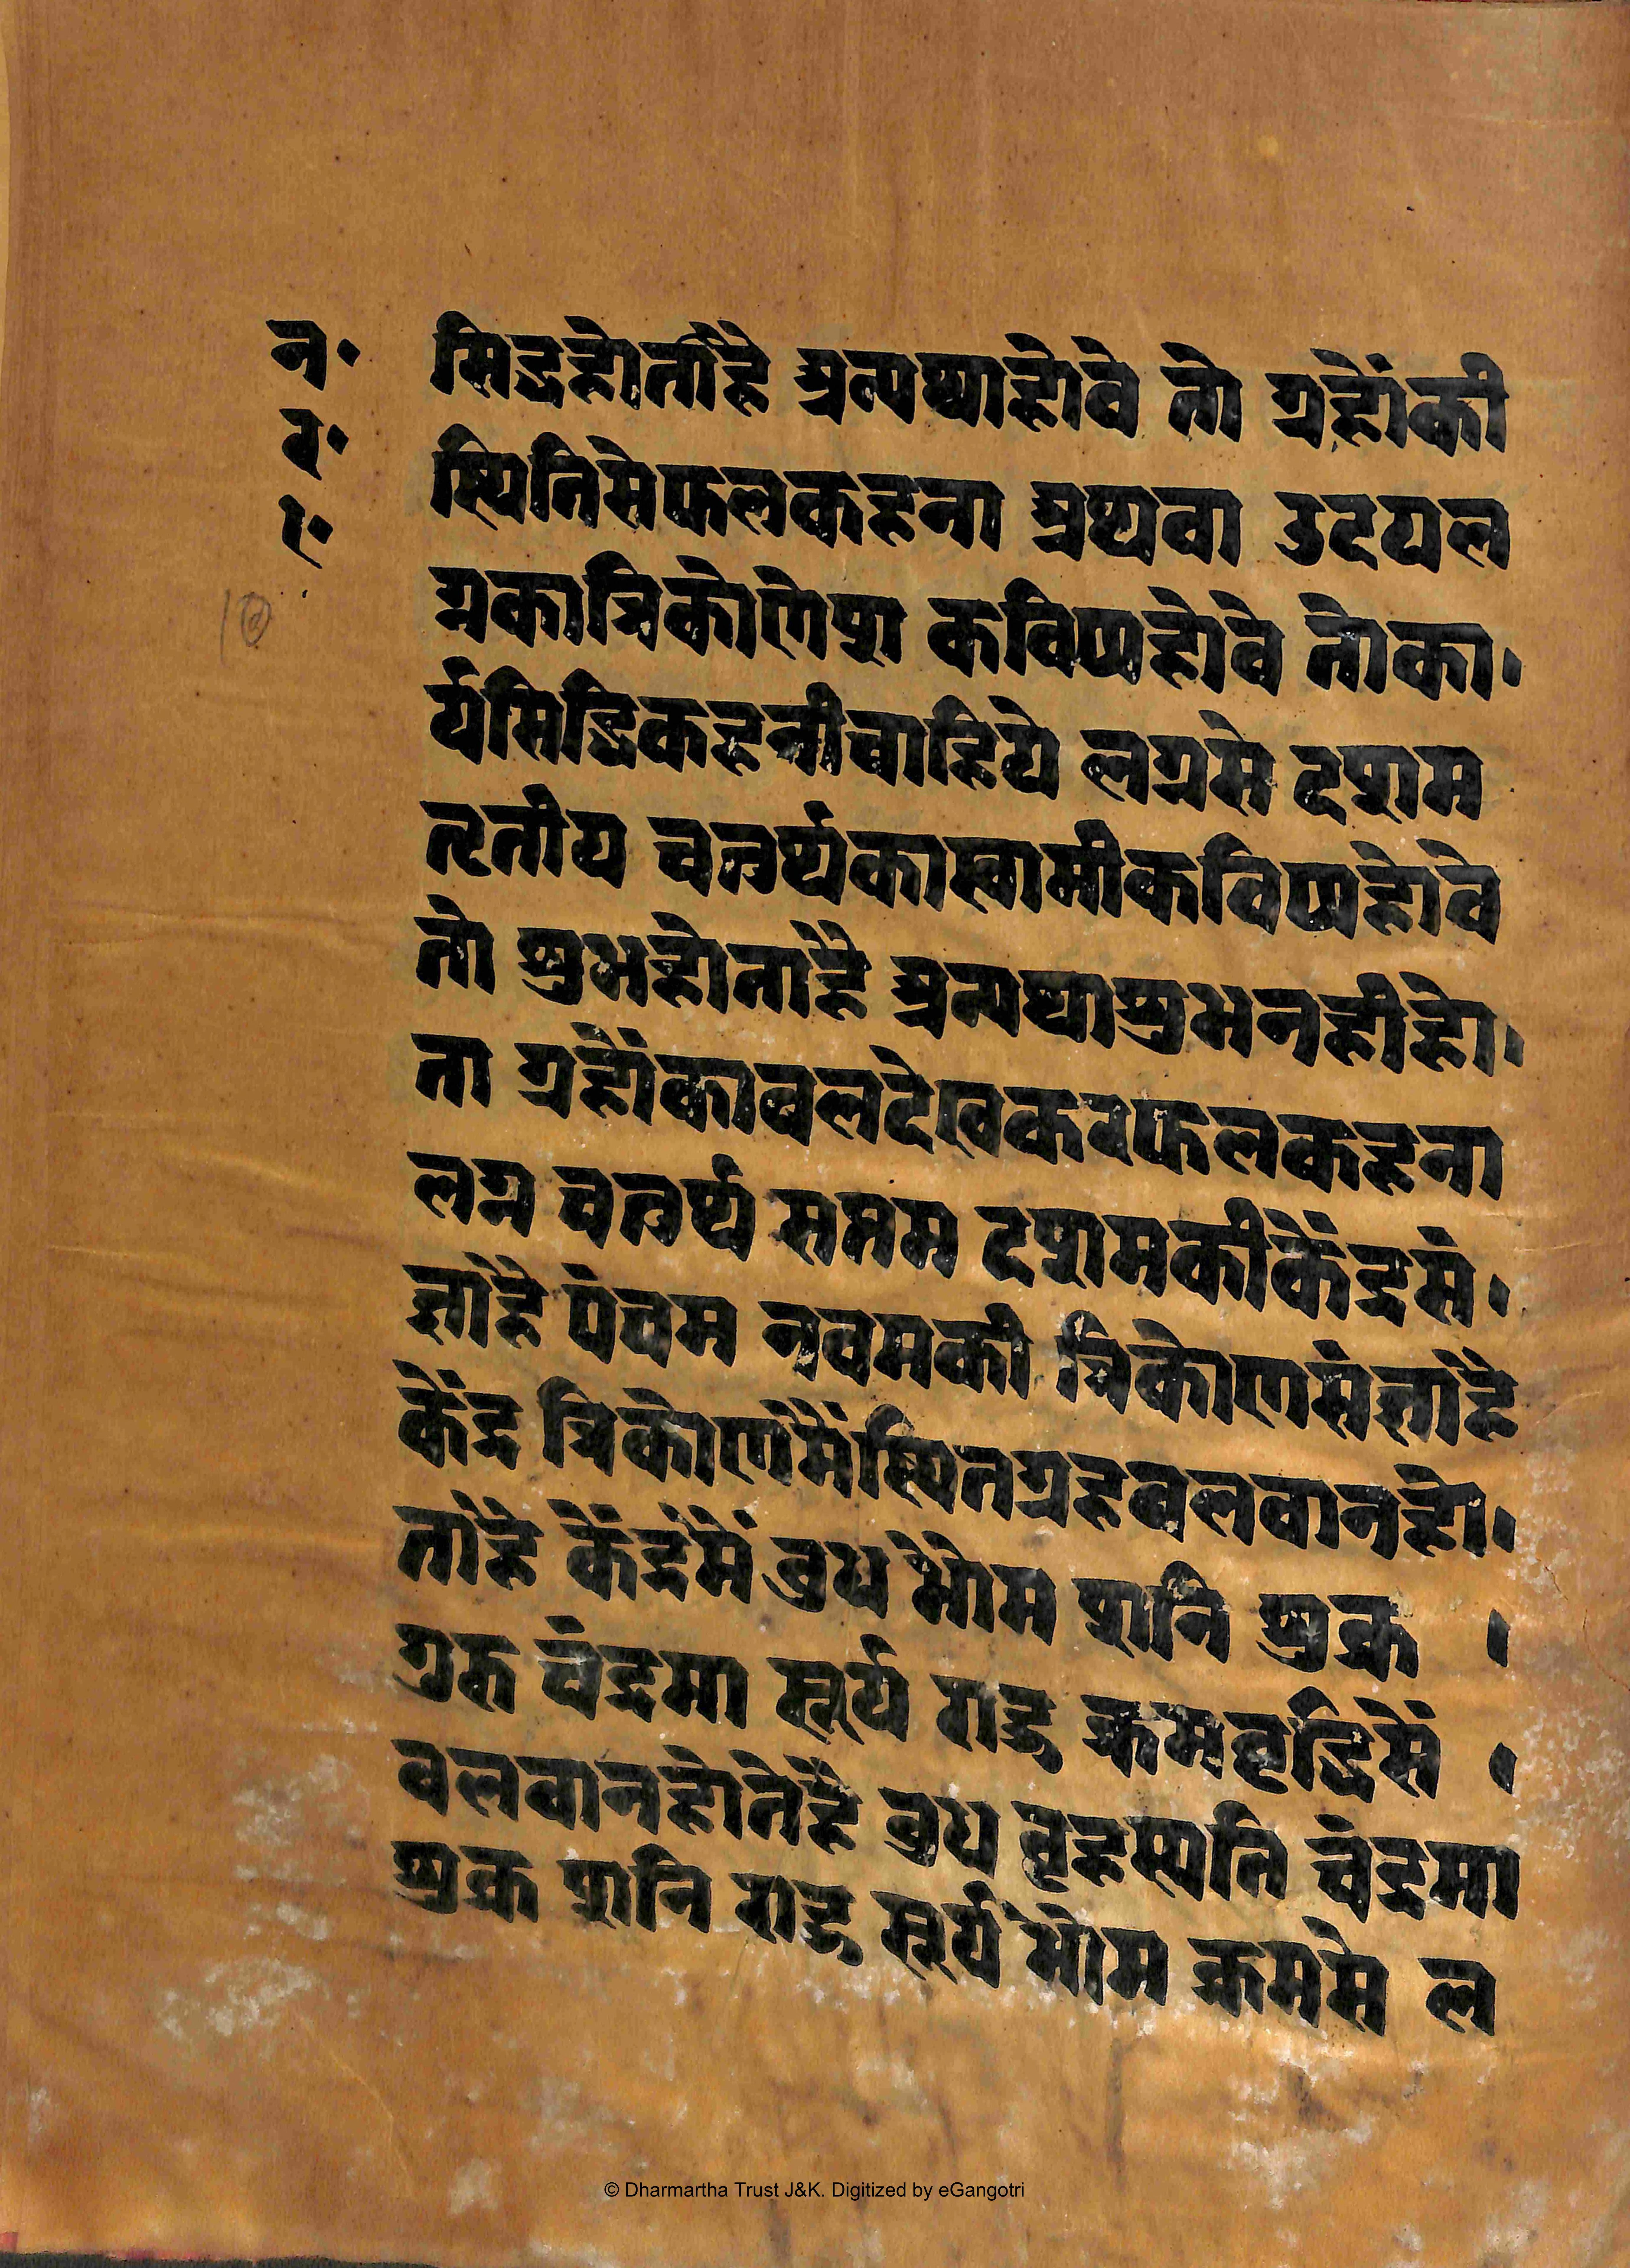 न॰
व॰
१॰
10
सिद्धहोतीहै अन्यथाहोवे तो ग्रहोंकी
स्थितिसेफलकहना अथवा उदयल
ग्नकात्रिकोणेश कविपाहोवे तोका॰
र्यसिद्धिकहनीचाहिये लग्नसे दशम
तृतीय चतुर्थकास्वामीकविपाहोवे
तो शुभहोताहै अन्यथाशुभनहीहो॰
ता ग्रहोंकावलदेखिकरफलकहना
लग्न चतुर्थ सप्तम दशमकीकेंद्रसं॰
ज्ञाहै पंचम नवमकी त्रिकोणसंज्ञाहै
केंद्र त्रिकोणमैंस्थितग्रहवलवानहो॰
ताहै केंद्रमैं वुध भौम शनि शुक्र ।
गुरु चंद्रमा सूर्य राहु क्रमवृद्धिसें ।
वलवानहोतेहै वुध वृहस्पति चंद्रमा
शुक्र शनि राहु सूर्य भौम क्रमसे ल
© Dharmartha Trust J&K. Digitized by eGangotri